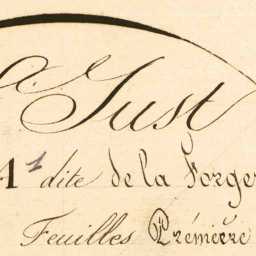 a. Just
A¹ dite de la Forge
Feuilles Première